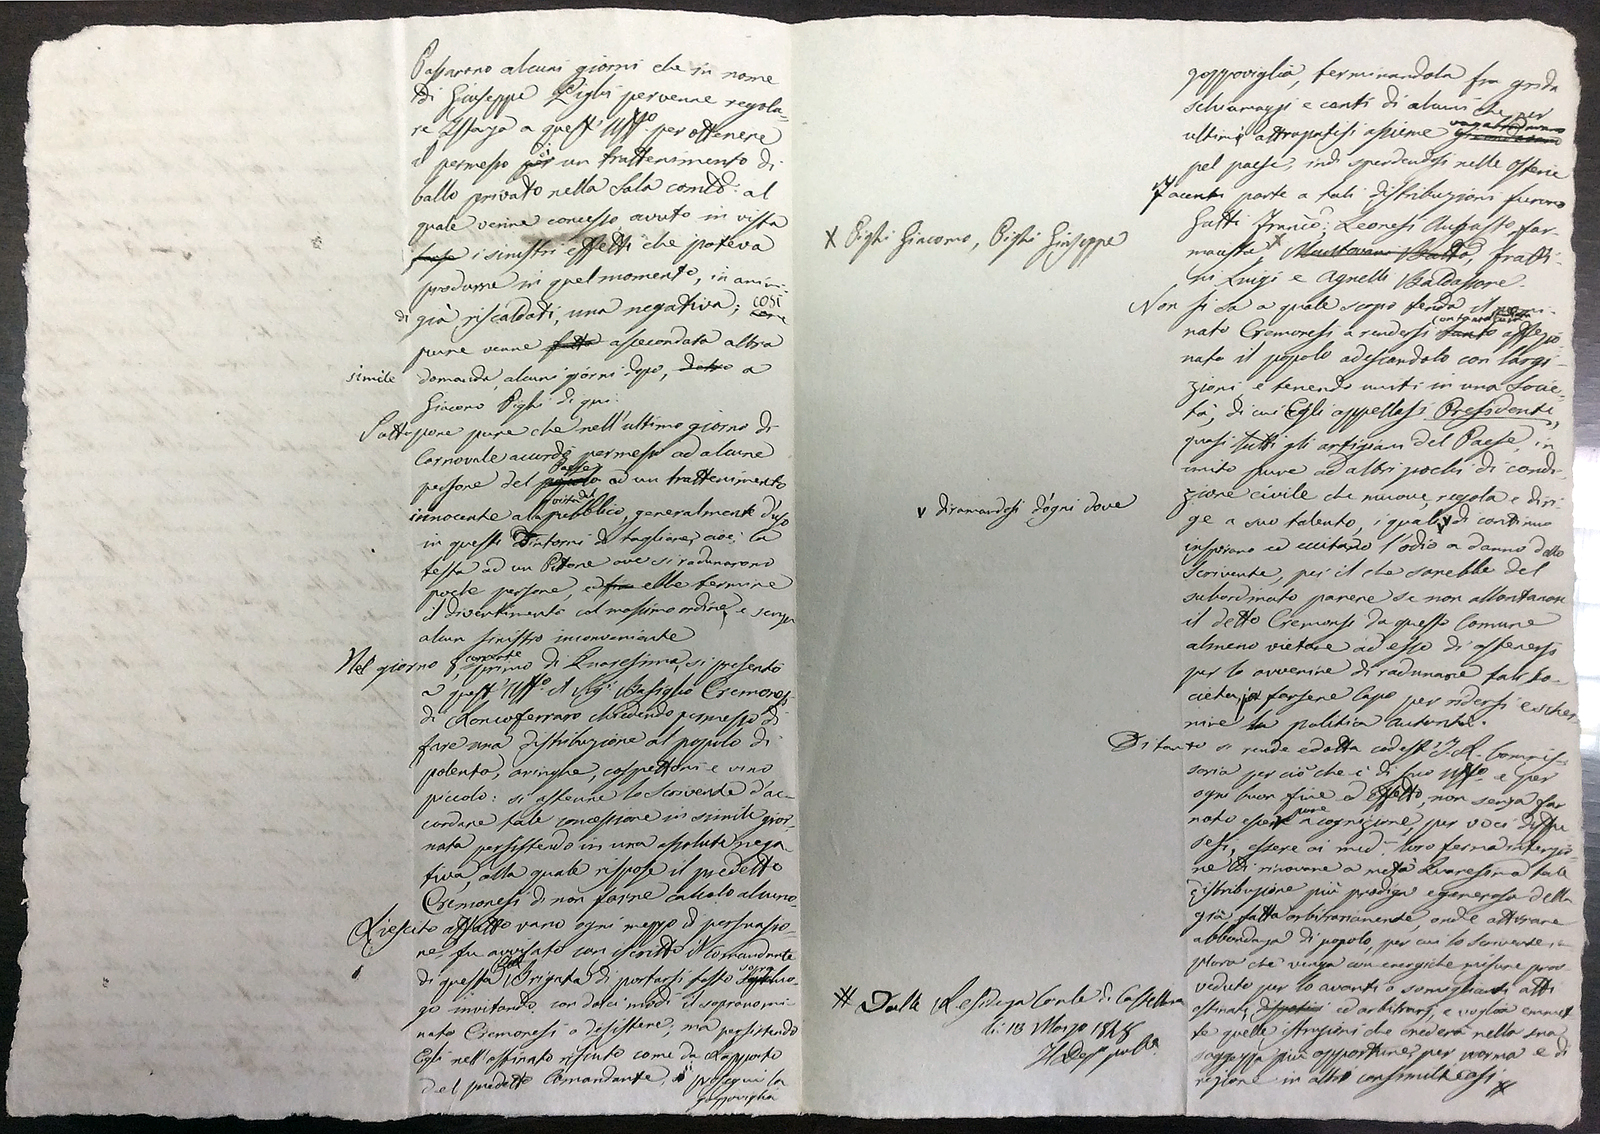 Passarono alcuni giorni che in nome
di Giuseppe Pighi pervenne regola-
re Istanza a quest'Uffo. per ottenere
il permesso per di un trattenimento di
ballo privato nella Sala comle: al
quale venne concesso avuto in vista
i sinistri effetti che poteva
produrre in quel momento, in animi
di già riscaldati, una negativa; così
pure venne fatto assecondata altra
simile domanda, alcuni giorni dopo, detto a
Giacomo Pighi di qui.
Sottopone pure che nell'ultimo giorno di
Carnovale accordò permesso ad alcune
persone del popolo Paese ad un trattenimento
innocente alla vista del pubblico, generalmente d'uso
in questi Dintorni di tagliare, cioè, la
testa ad un Pitone ove si radunarono
poche persone, ed ebbe termine
il divertimento col massimo ordine, e senza
alcun sinistro inconveniente
Nel giorno 8 corrente, primo di Quaresima, si presentò
a quest'Uffo. il Sigr. Basiglio Cremonesi
di Roncoferraro chiedendo permesso di
fare una distribuzione al popolo di
polenta, aringhe, cospettoni e vino
piccolo: si astenne lo Scrivente d'ac-
cordare tale concessione in simile gior-
nata persistendo in una assoluta nega-
tiva, alla quale rispose il predetto
Cremonesi di non farne calcolo alcuno.
Riescito affatto vano ogni mezzo di persuasio-
ne, fu avvisato con iscritto il Comandante
di questa Brigata di portarsi tosto sopra luo-
go invitando, con dolci modi il sopranomi-
nato Cremonesi a desistere, ma persistendo
Egli nell'ostinato rifiuto come da Rapporto
del predetto Comandante, proseguì la
gozzoviglia
X Pighi Giacomo, Pighi Giuseppe
v diramandosi d'ogni dove
# Dalla Residenza Comle di Castellara
li 13 Marzo 1848
Il Depo. polo.
gozzoviglia, terminandola fra grida
schiamazzi e canti di alcuni che per
ultimo attrupatisi assieme vagabondarono
pel paese, indi sperdendosi nelle Osterie
Facenti parte a tali distribuzioni furono
Gatti Franco: Leonesi Augusto, far-
macista, X Mantovani Batta, Fratti-
ni Luigi e Agnelli Baldassare.
Non si sa a quale scopo tenda il nomi-
nato Cremonesi a rendersi tanto affezio-
nato il popolo adescandolo con largi-
zioni, e tenendo uniti in una Socie-
tà, di cui Egli appellasi Presidente,
quasi tutti gli artigiani del Paese, in
unito pure ad altri pochi di condi-
zione civile che muove, regola e diri-
ge a suo talento, i quali v di continuo
inspirano ed eccitano l'odio a danno dello
Scrivente, per il che sarebbe del
subordinato parere se non allontanare
il detto Cremonesi da questo Comune
almeno vietare ad esso di astenersi
per lo avvenire di radunare tali So-
cietà, e farsene Capo per ridersi e scher-
nire la politica autorità.
Di tanto si rende edotta codesta I. R. Commis-
saria per ciò che è di suo Uffo. e per
ogni buon fine ed effetto, non senza far
noto essere pure a cognizione, per voci diffu-
sesi, essere ai med. loro ferma intenzio-
ne di rinovare a metà Quaresima tale
distribuzione più prodiga e generosa della
già fatta arbitrariamente, onde attirare
abbondanza di popolo, per cui lo scrivente, im-
plora che venga con energiche misure prov-
veduto per lo avanti a somiglianti atti
ostinati, dispotici ed arbitrarj, e voglia emmet-
te quelle istruzioni che crederà nella sua
saggezza più opportune, per norma e di-
rezione in altri consimili casi #